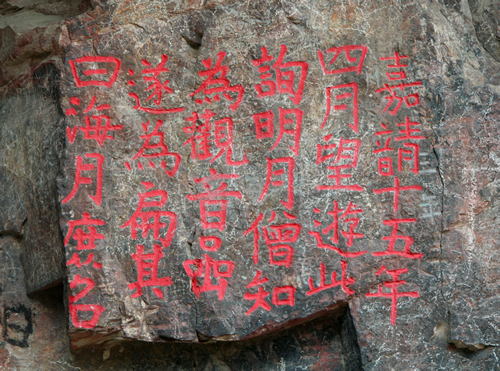 嘉靖十五年
四月望遊此
詢明月僧知
為觀音喦
遂為扁其
曰海月